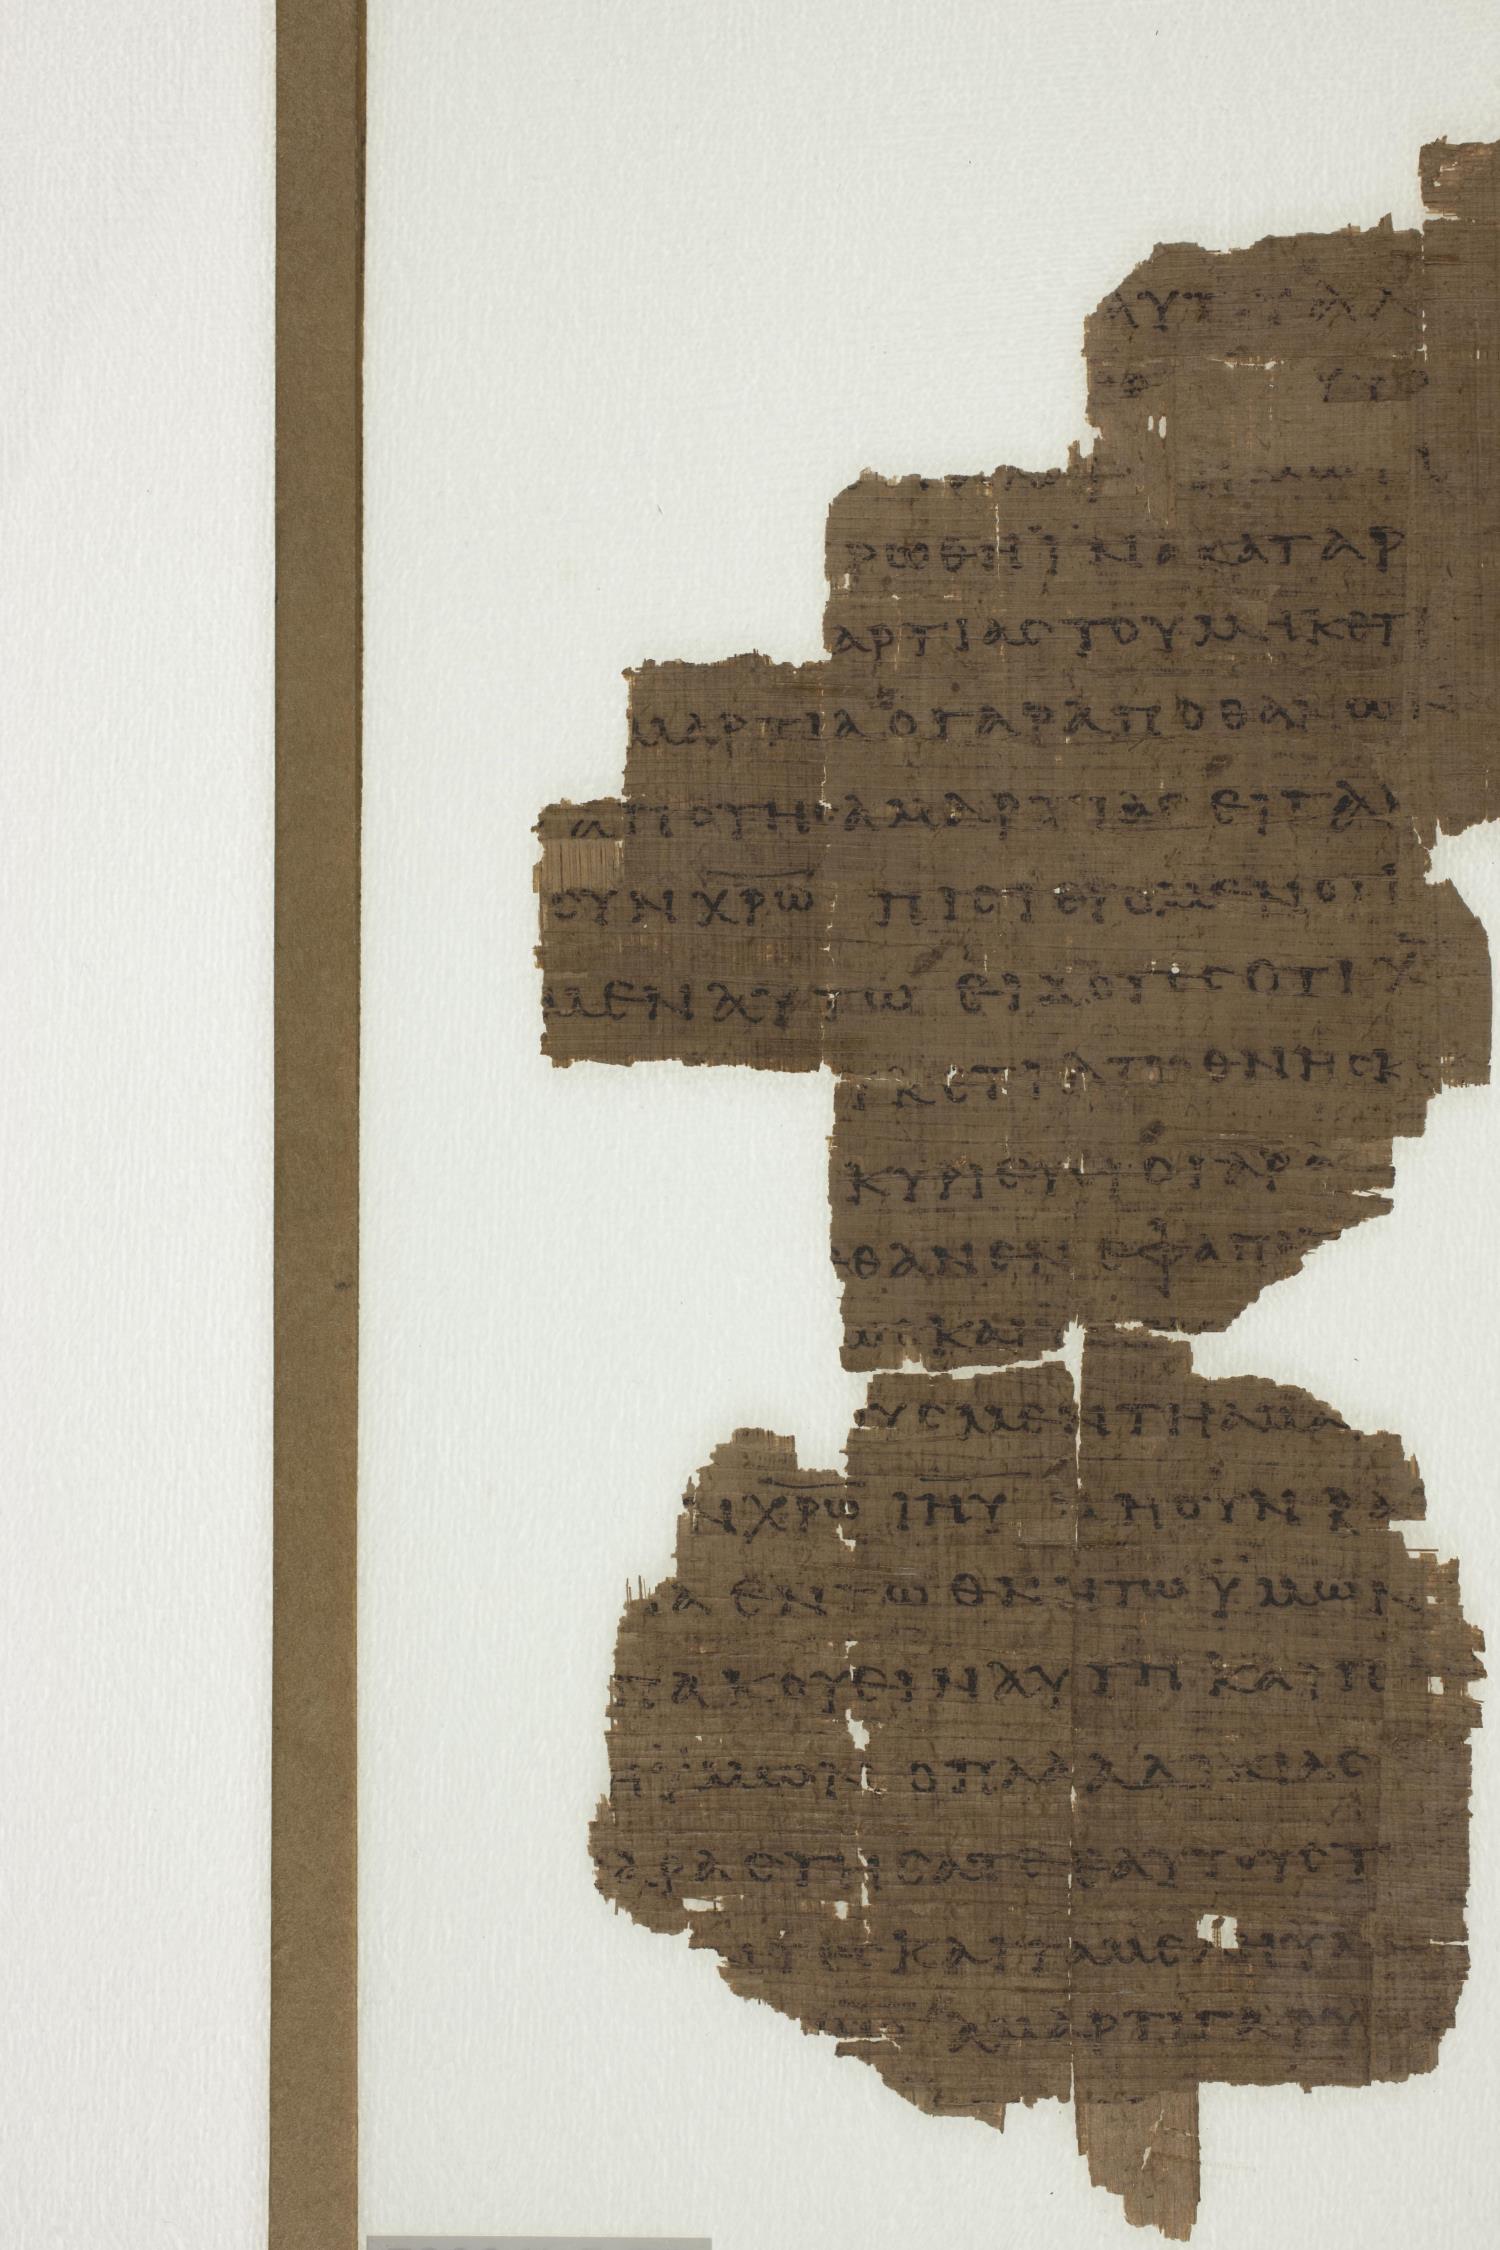 ΑΥΤ ΑΛ
ΥΤΟ
ΡΩΘΗ ΪΝΑ ΚΑΤΑΡ
ΑΡΤΙΑϹ ΤΟΥ ΜΗΚΕΤ
ΜΑΡΤΙΑ Ο ΓΑΡ ΑΠΟΘΑΝΩΝ
ΑΠΟ ΤΗϹ ΑΜΑΡΤΙΑϹ ΕΙ ΓΑ
ϹΥΝ Χ̅Ρ̅Ω̅ ΠΙϹΤΕΥΟΜΕΝ ΟΤΙ
ΜΕΝ ΑΥΤΩ ΕΙΔΟΤΕϹ ΟΤΙ Χ
ΥΚΕΤΙ ΑΠΟΘΝΗϹΚ
ΚΥΡΙΕΥΕΙ Ο ΓΑΡ Α
ΕΘΑΝΕΝ ΕΦΑΠ
ΚΑΙ
ΟΥϹ ΜΕΝ ΤΗ ΑΜΑ
Ν Χ̅Ρ̅Ω̅ Ι̅Η̅Υ̅ ΜΗ ΟΥΝ ΒΑ
ΙΑ ΕΝ ΤΩ ΘΝΗΤΩ ΫΜΩΝ
ΠΑΚΟΥΕΙΝ ΑΥΤΗ ΚΑΙ Π
Η ΫΜΩΝ ΟΠΛΑ ΑΔΙΚΙΑϹ
ΑΡΑϹΤΗϹΑΤΕ ΕΑΥΤΟΥϹ Τ
ΝΤΕϹ ΚΑΙ ΤΑ ΜΕΛΗ ΥΜ
ΑΜΑΡΤΙ ΓΑΡ Υ